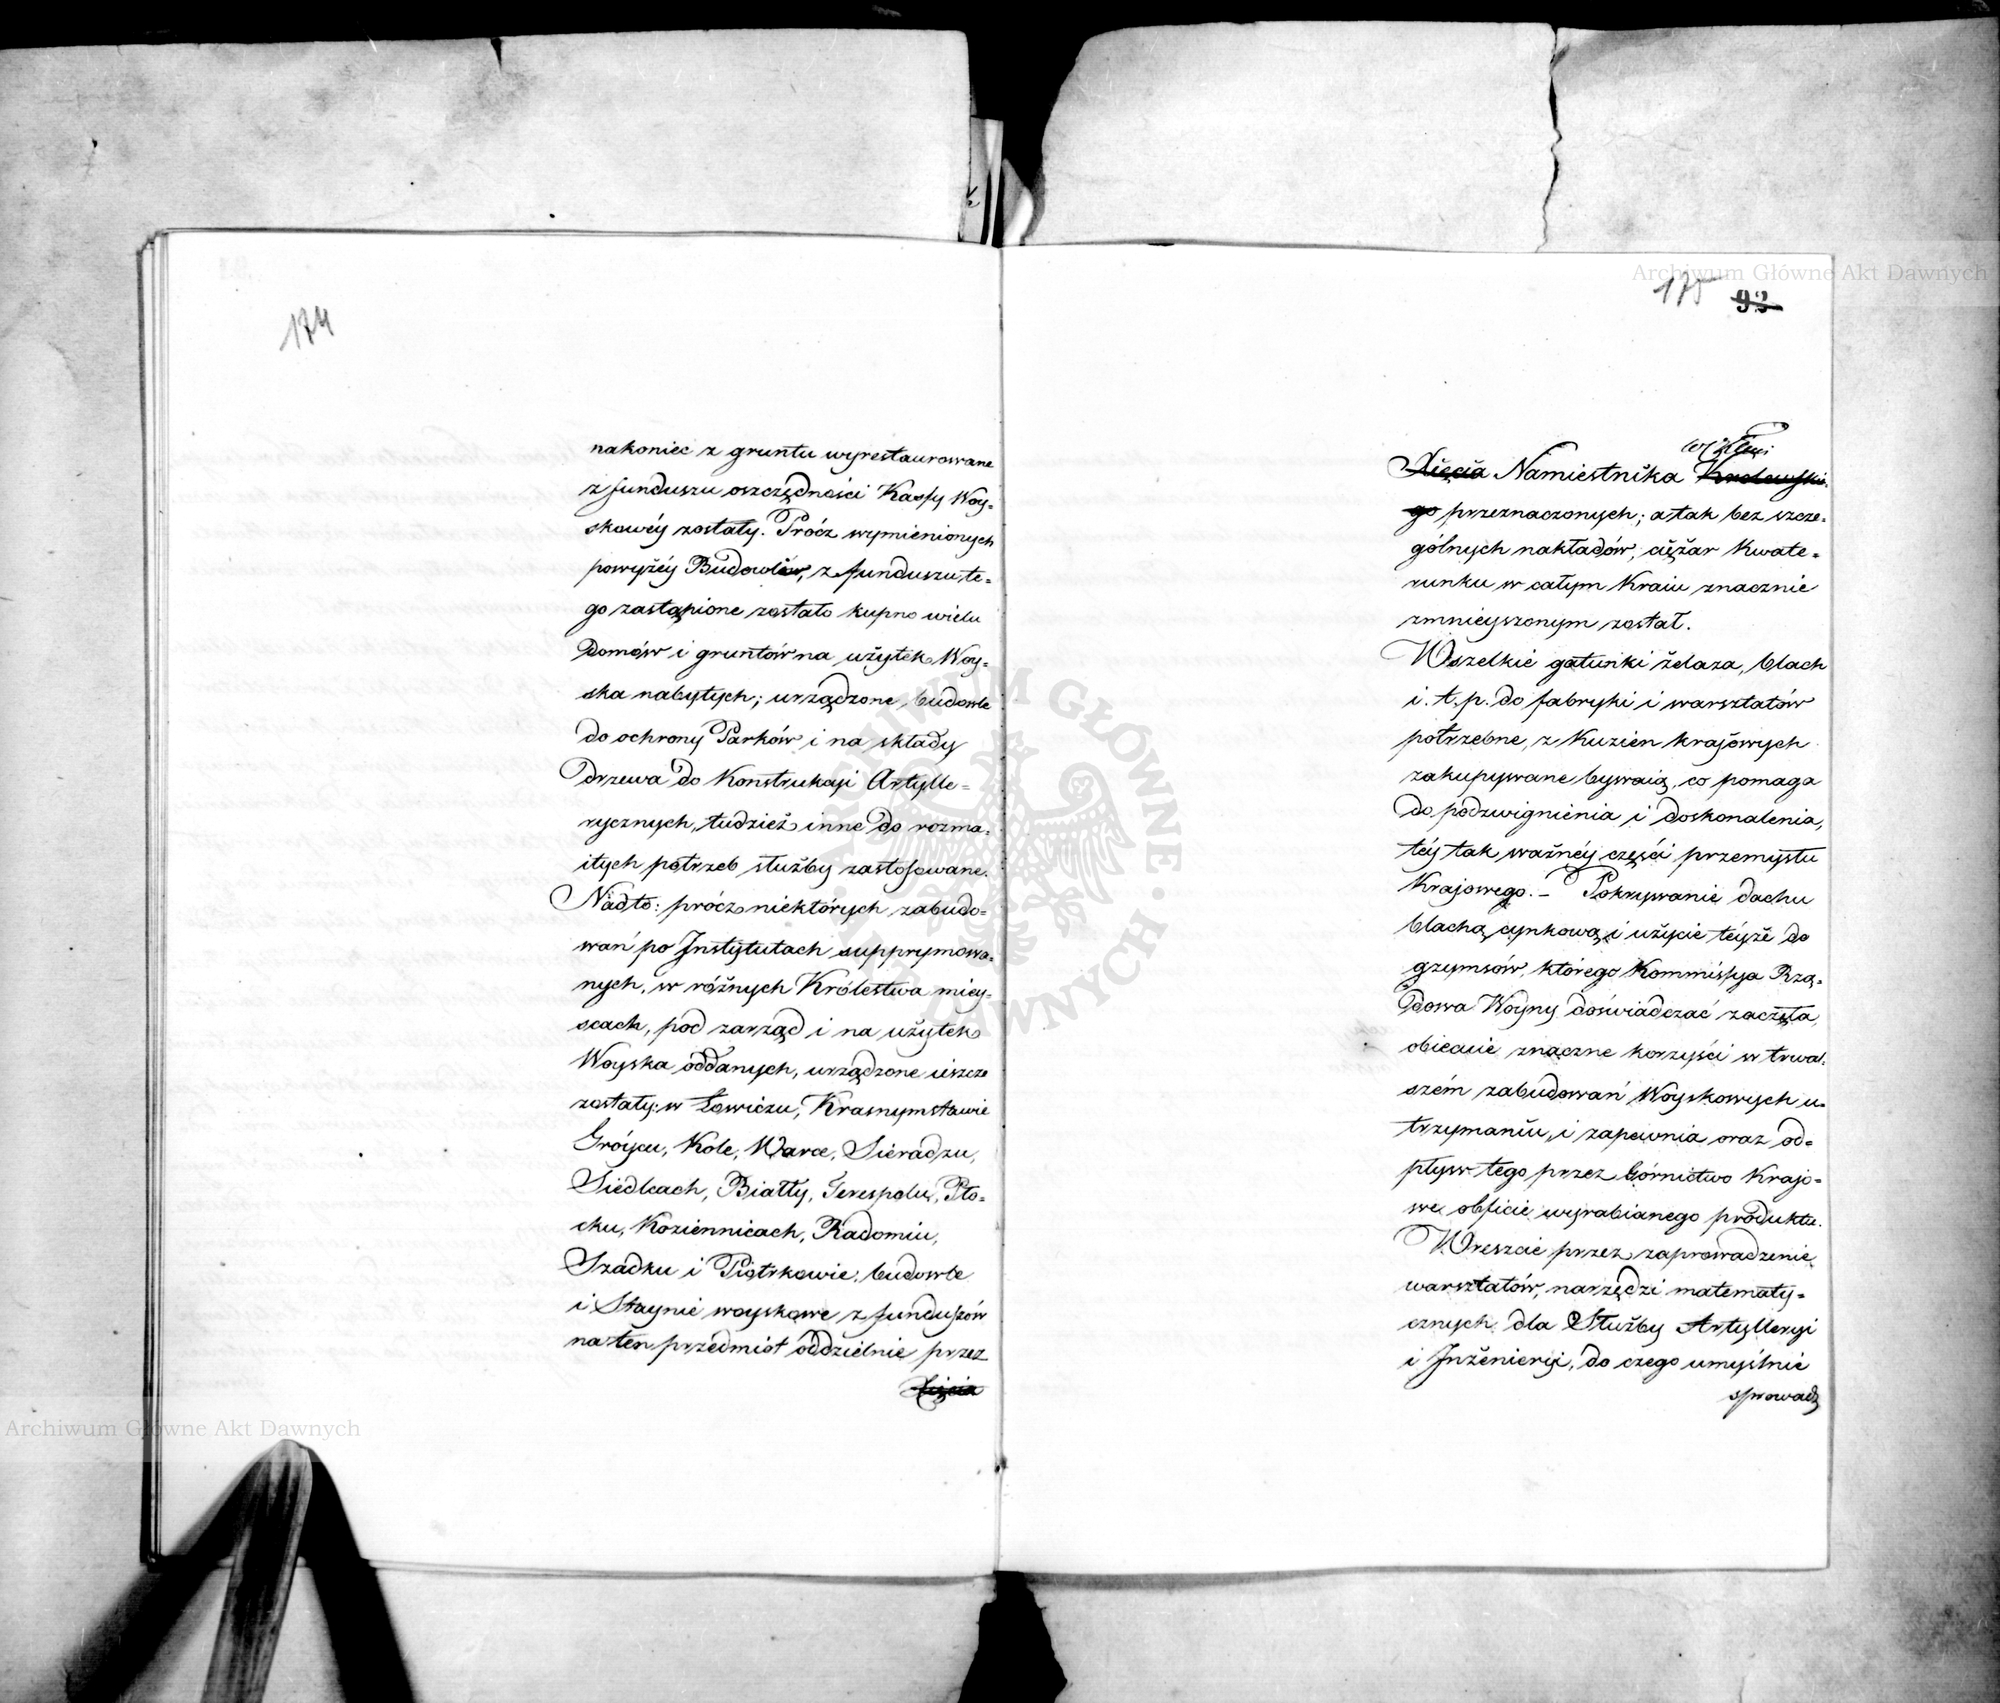 174
nakoniec z gruntu wyrestaurowane
z funduszu oszczędności Kassy Woy-
skowéy zostały. Prócz wymienionych
powyżéy Budowlów, z funduszu te-
go zastąpione zostało kupno wielu
Domów i gruntów na użytek Woy-
ska nabytych; urządzone budowle
do ochrony Parków i na składy
drzewa do Konstrukcyi Artylle-
rycznych, tudzież inne do rozma-
itych potrzeb służby zastosowane.
Nadto: prócz niektórych zabudo-
wań po Instytutach supprymowa-
nych, w różnych Królestwa miey-
scach, pod zarząd i na użytek
Woyska oddanych, urządzone ieszcze
zostały: w Łowiczu, Krasnymstawie
Gróycu, Kole, Warce, Sieradzu,
Siedlcach, Białły, Terespolu, Pło-
cku, Koziennicach, Radomiu,
Szadku i Piotrkowie, budowle
i Staynie woyskowe z funduszów
na ten przedmiot oddzielnie przez
Xięcia
175 92
Xięcia Namiestnika Krolewskie-
go przeznaczonych; a tak bez szcze-
gólnych nakładów, ciężar Kwate-
runku w całym Kraiu znacznie
zmnieyszonym został.
Wszelkie gatunki żelaza, blach
i. t. p. do fabryki i warsztatów
potrzebne, z Kuzien krajowych
zakupywane bywaią, co pomaga
do podzwignienia i doskonalenia,
téy tak ważnéy części przemysłu
Krajowego. – Pokrywanie dachu
blachą cynkową i użycie téyże do
gzymsów, którego Kommissya Rzą-
dowa Woyny doświadczać zaczęła,
obiecuie znaczne korzyści w trwal-
szém zabudowań Woyskowych u-
trzymaniu, i zapewnia oraz od-
pływ tego przez Górnictwo Krajo-
we obficie wyrabianego produktu.
Wreszcie przez zaprowadzenie
warsztatów, narzędzi matematy-
cznych dla Służby Artylleryi
i Inżenieryi, do czego umyślnie
sprowadz
Archiwum Główne Akt Dawnych
Archiwum Główne Akt Dawnych
ARCHIWUM GŁÓWNE AKT DAWNYCH